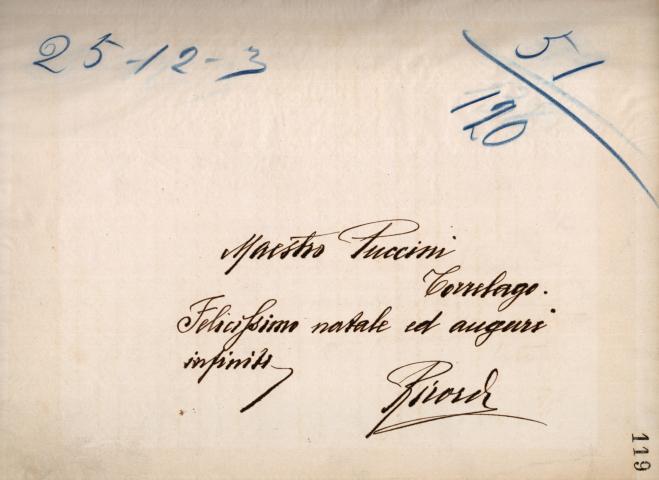 25-12-3
51
120
Maestro Puccini
Torrelago.
Felicissimo natale ed auguri
infiniti
Ricordi
119